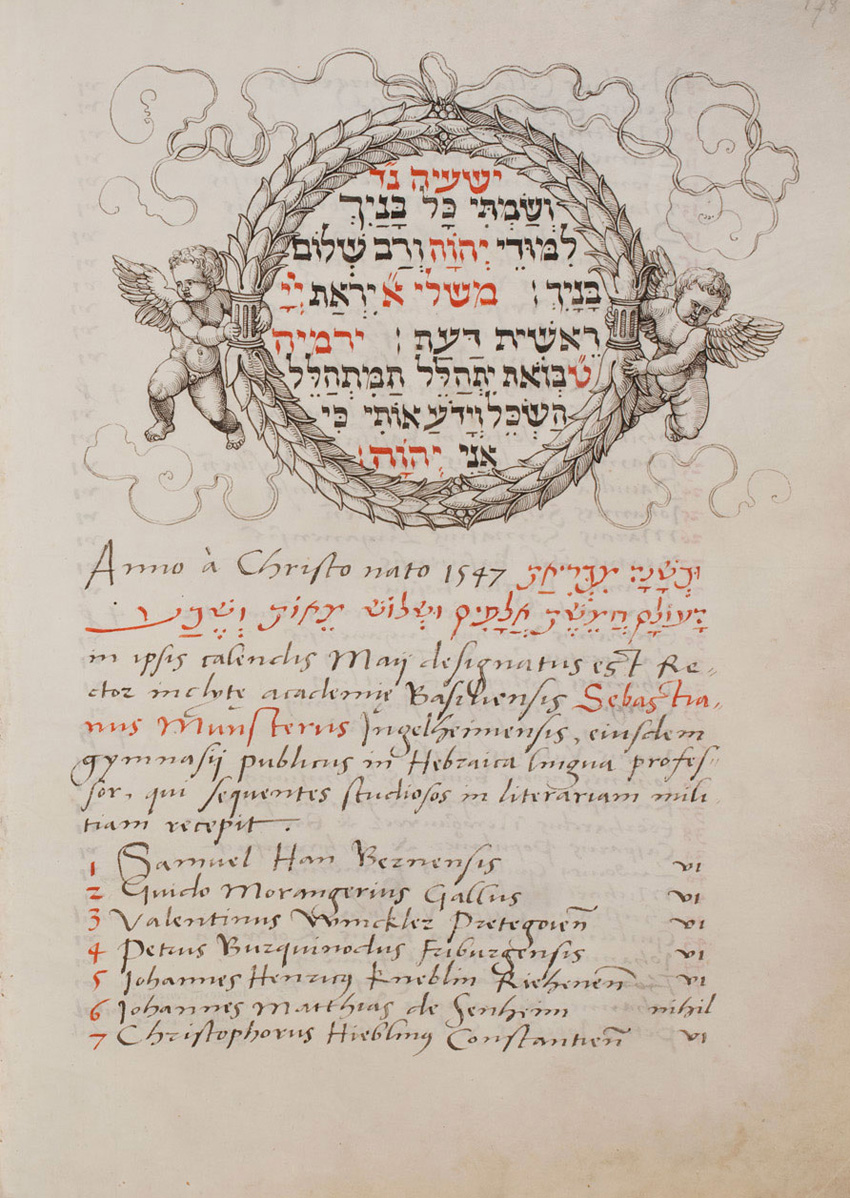 178
ישעיה נ״ד
וְשַׂמְתִּי כָּל בָּנַיִךְ
לִמּוּדֵי יְהוָֹה וְרַב שְׁלוֹם
בָּנָיִךְ׃ משלי א״ יִרְאַת יְיָ
רֵאשִׁית דַּעַת׃ ירמיה
ט״ בְּזֹאת יִתְהַלֵּל הַמִּתְהַלֵּל
הַשְׂכֵּל וְיָדֹעַ אוֹתִי כִּי
אֲנִי יְהוָֹה׃
Anno à Christo nato 1547
חֲמֵשֶׁת אֲלָפִים ושלוש מֵאוֹת וְשֶׁבַע
in ipsis calendis Maij designatus est Re-
ctor inclytę academię Basiliensis Sebastia-
nus Munsterus Ingelheimensis, eiusdem
gymnasij publicus in Hebraica lingua profes-
sor, qui sequentes studiosos in literariam mili
tiam recepit.
1 Samuel Han Bernensis vi
2 Guido Morangerius Gallus vi
3 Valentinus Winckler Pretegoien̄ vi
4 Petrus Burquinodus Friburgensis vi
5 Iohannes Henricꝰ Kneblin Riehenen̄ vi
6 Iohannes Matthias de Senheim nihil
7 Christophorus Hieblinꝰ Constantien̄ vi